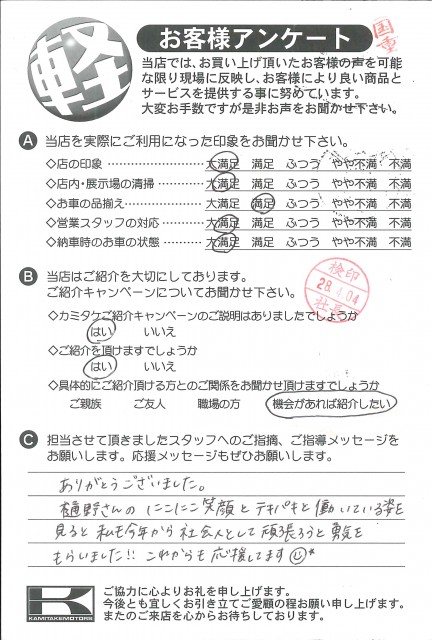 軽
お客様アンケート
国重
当店では、お買い上げ頂いたお客様の声を可能
な限り現場に反映し、お客様により良い商品と
サービスを提供する事に努めています。
大変お手数ですが是非お声をお聞かせ下さい。
A 当店を実際にご利用になった印象をお聞かせ下さい。
◇店の印象 大満足 満足 ふつう やや不満 不満
◇店内・展示場の清掃 大満足 満足 ふつう やや不満 不満
◇お車の品揃え 大満足 満足 ふつう やや不満 不満
◇営業スタッフの対応 大満足 満足 ふつう やや不満 不満
◇納車時のお車の状態 大満足 満足 ふつう やや不満 不満
B 当店はご紹介を大切にしております。
ご紹介キャンペーンについてお聞かせ下さい。
検印
28.4.04
社長
◇カミタケご紹介キャンペーンのご説明はありましたでしょうか
はい いいえ
◇ご紹介を頂けますでしょうか
はい いいえ
◇具体的にご紹介頂ける方とのご関係をお聞かせ頂けますでしょうか
ご親族 ご友人 職場の方 機会があれば紹介したい
C 担当させて頂きましたスタッフへのご指摘、ご指導メッセージを
お願いします。応援メッセージもぜひお願いします。
ありがとうございました。
樋野さんの にこにこ笑顔と テキパキと働いている姿を
見ると 私も今年から 社会人として 頑張ろうと 勇気を
もらいました!! これからも応援してます
K
KAMITAKEMOTORS
ご協力に心よりお礼を申し上げます。
今後とも宜しくお引き立てご愛顧の程お願い申し上げます。
またのご来店を心からお待ちしております。